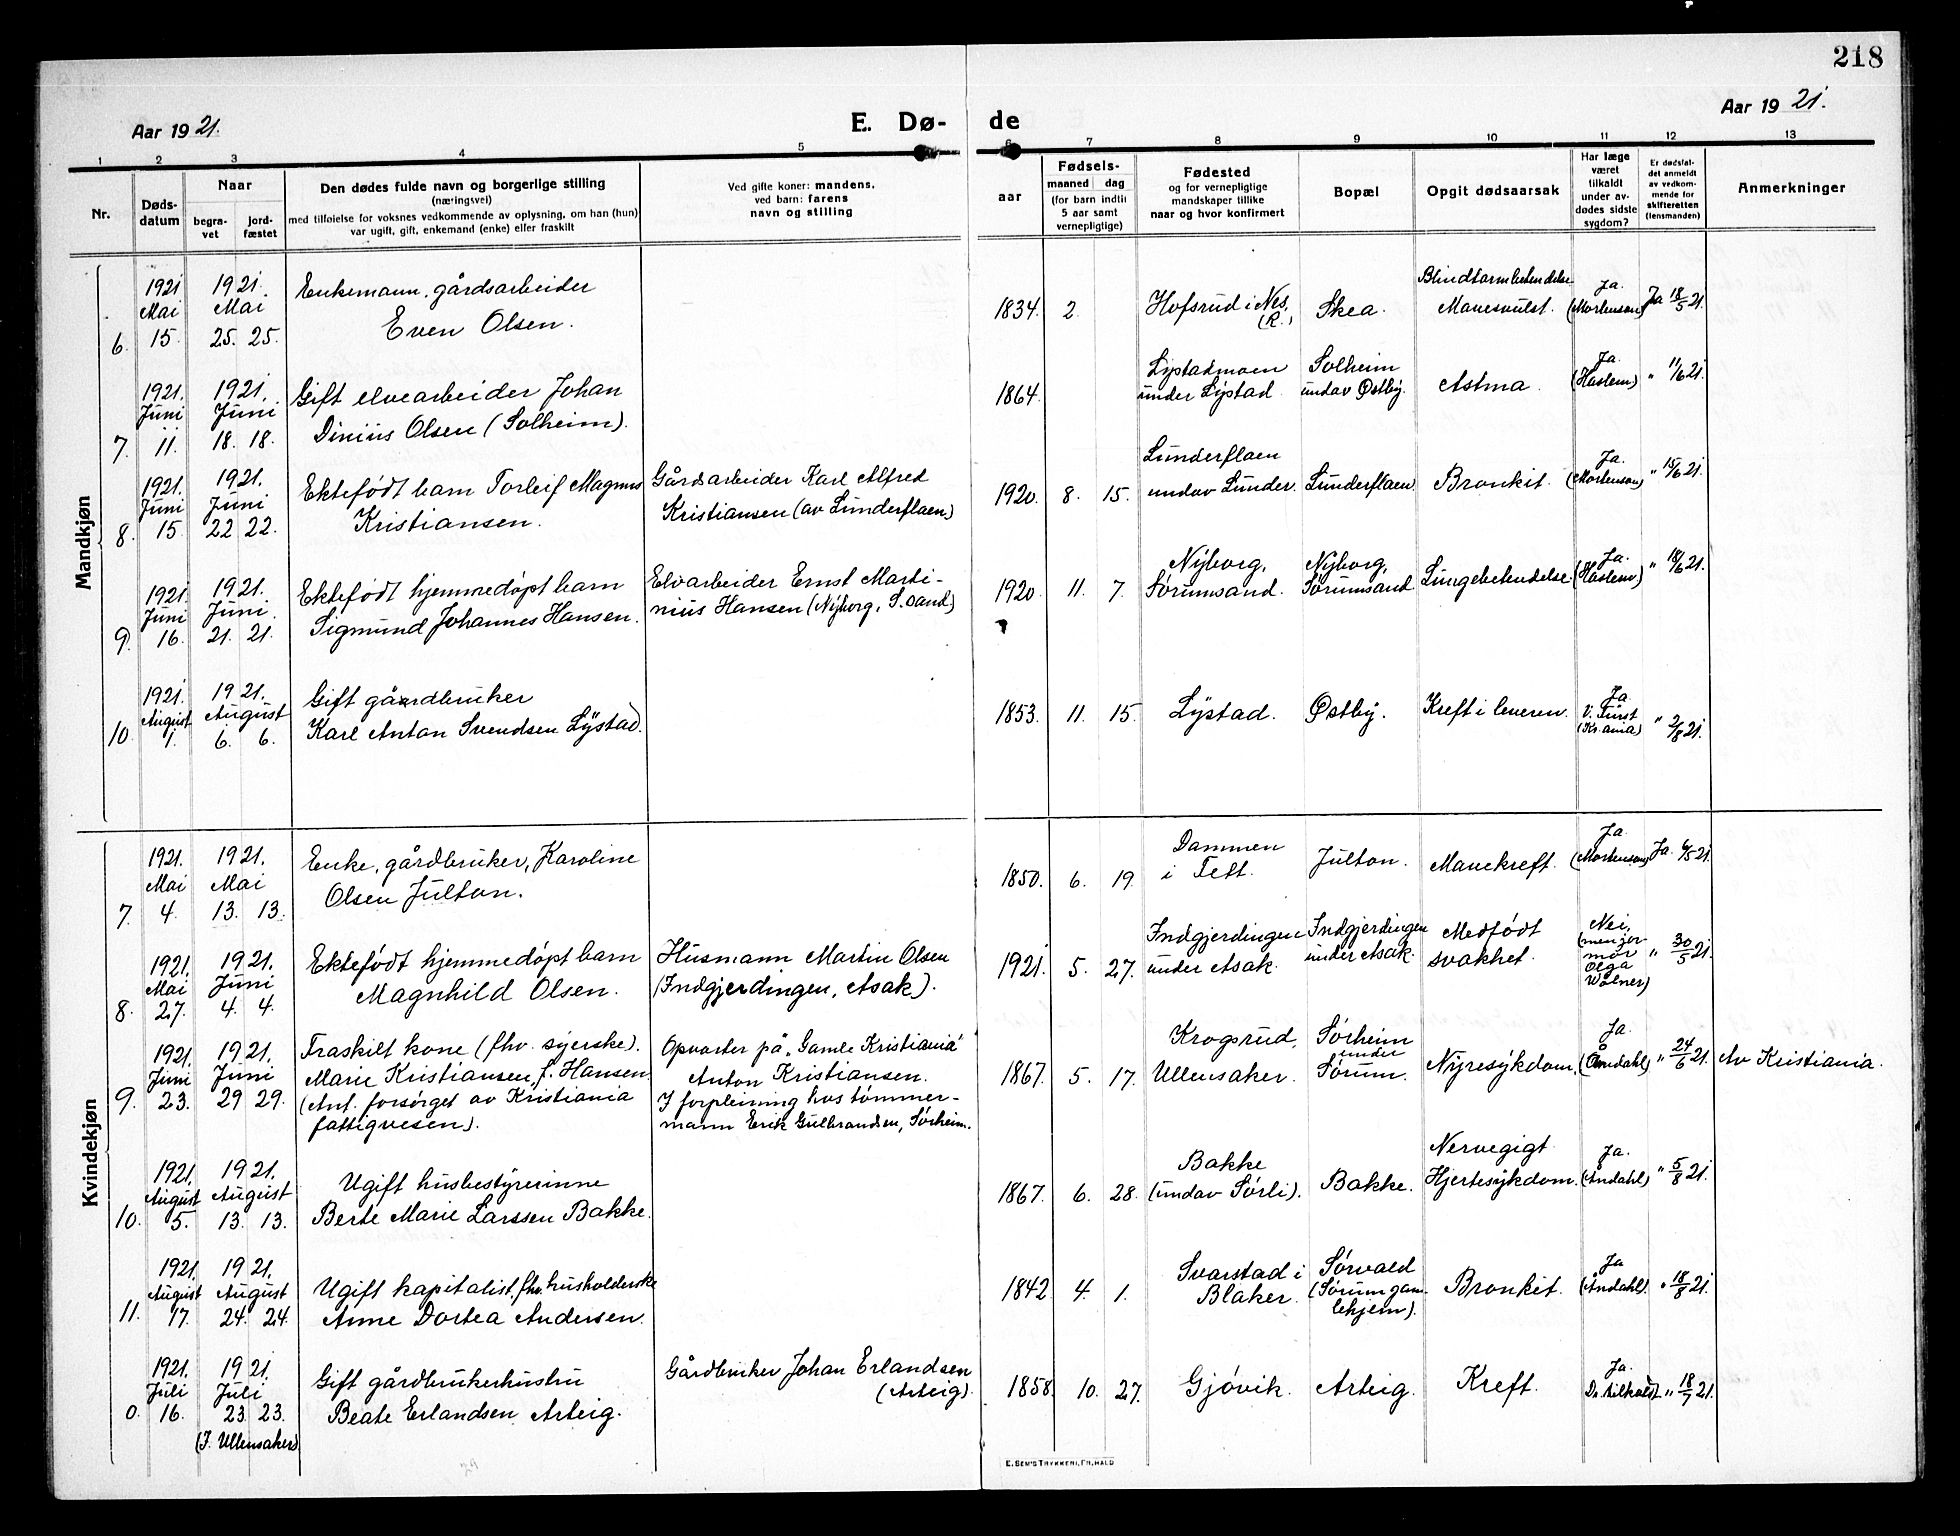 218
Aar 1921.
E. Dø-
de
Aar 1921.
1 2 3 4 5 6 7 8 9 10 11 12 13
Nr.
Døds-
datum
Naar
begra-
vet
jord-
fæstet
Den dødes fulde navn og borgerlige stilling
(næringsvei)
med tilføielse for voksnes vedkommende av oplysning, om han (hun)
var ugift, gift, enkemand (enke) eller fraskilt
Ved gifte koner: mandens,
ved barn: farens
navn og stilling
aar
Fødsels-
maaned dag
(for barn indtil
5 aar samt
vernepligtige)
Fødested
og for vernepligtige
mandskaper tillike
naar og hvor konfirmert
Bopæl
Opgit dødsaarsak
Har læge
været
tilkaldt
under av-
dødes sidste
sygdom?
Er dødsfal-
det anmeldt
av vedkom-
mende for
skifteretten
(lensmanden)
Anmerkninger
Mandkjøn
6.
1921
Mai
15.
1921.
Mai
25. 25.
Enkemann, gårdsarbeider
Even Olsen.
1834. 2.
Hofsrud i Nes,
(R.)
Skea.
Blindtarmbetendelse
Mavesvulst.
Ja.
(Mortenson)
Ja 18/5 21.
7.
1921.
Juni
11.
1921.
Juni
18. 18.
Gift elvearbeider Johan
Dinius Olsen (Solheim).
1864.
Lystadmoen
under Lystad.
Solheim
undav Østby.
Astma.
Ja.
(Haslem)
" 11/6 21.
8.
1921.
Juni
15.
1921.
Juni
22 22.
Ektefødt barn Torleif Magnus
Kristiansen.
Gårdsarbeider Karl Alfred
Kristiansen (av Lunderflaen)
1920. 8. 15.
Lunderflaen
undav Lunder.
Lunderflaen.
Bronkit.
Ja.
(Mortenson)
" 15/6 21.
9.
1921.
Juni
16.
1921.
Juni.
21. 21.
Ektefødt hjemmedøpt barn
Sigmund Johannes Hansen.
Elvarbeider Ernst Marti-
nius Hansen (Nyborg, S.sand)
1920. 11. 7.
Nyborg,
Sørumsand.
Nyborg,
Sørumsand
Lungebetendelse.
Ja.
(Haslem)
" 18/6 21.
10.
1921.
August
1.
1921.
August
6. 6.
Gift gårdbruker
Karl Anton Svendsen Lystad.
1853. 11. 15.
Lystad.
Østby.
Kreft i leveren.
Ja
V. Fürst
(Kr.ania)
" 2/8 21.
Kvindekjøn
7.
1921.
Mai
4.
1921.
Mai
13. 13.
Enke, gårdbruker, Karoline
Olsen Julton.
1850. 6. 19.
Dammen
i Fett.
Julton.
Mavekreft.
Ja.
(Mortenson)
Ja. 6/5 21.
8.
1921.
Mai
27.
1921.
Juni
4. 4.
Ektefødt hjemmedøpt barn
Magnhild Olsen.
Husmann Martin Olsen
(Indgjerdingen, Asak).
1921. 5. 27.
Indgjerdingen
under Asak.
Indgjerdingen
under Asak.
Medfødt
svakhet.
Nei,
mor
Olga
" 30/5 21.
9.
1921.
Juni
23.
1921.
Juni
29 29.
Fraskilt kone (fhv. syerske).
Marie Kristiansen, f. Hansen.
(Ant. forsørget av Kristiania
fattigvesen).
Opvarter på "Gamle Kristiania"
Anton Kristiansen.
I forpleining hos tømmer-
mann Erik Gulbrandsen, Sørheim.
1867. 5. 17.
Krogsrud,
Ullensaker.
Sørheim
under
Sørum.
Nyresykdom.
Ja.
(Åndahl)
" 24/6 21.
Av Kristiania.
10.
1921.
August
5.
1921.
August
13. 13.
Ugift husbestyrerinne
Berte Marie Larssen Bakke.
1867. 6. 28.
Bakke
(undav Sørli).
Bakke.
Nervegigt
Hjertesykdom.
Ja.
(Åndahl)
" 5/8 21.
11.
1921.
August
17.
1921.
August
24. 24.
Ugift kapitalist, fhv. husholderske
Anne Dortea Andersen.
1842 4. 1.
Svarstad i
Blaker.
Sørvald
(Sørum gam-
lehjem).
Bronkit.
Ja
(Åndahl).
" 18/8 21.
0.
1921.
Juli
16.
1921.
Juli
23. 23.
(I. Ullensaker)
Gift gårdbrukerhustru
Beate Erlandsen Arteig.
Gårdbruker Johan Erlandsen
(Arteig)
1858. 10. 27.
Gjøvik.
Arteig.
Kreft.
Ja.
Dr. tilkaldt
" 18/7 21.
E. SEM'S TRYKKERI, FR.HALD